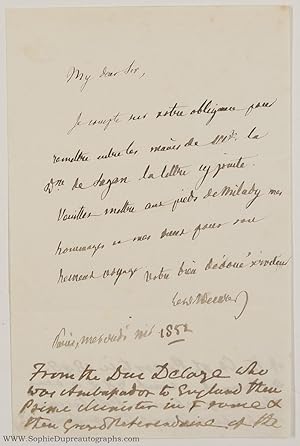 My dear Sir,
Je compte sur votre obligeance pour
remettre entre les mains de Mde. la
Dsse de Sagan la lettre cy jointe.
Veuillez mettre aux pieds de Milady mes
hommages et mes vœux pour son
heureux voyage votre bien dévoué serviteur
Paris, mercredi 1852
From the Duc Decaze who
was Ambassador to England then
Prime Minister in France &
then Grand Referendaire of the
www.SophieDupreautographs.com